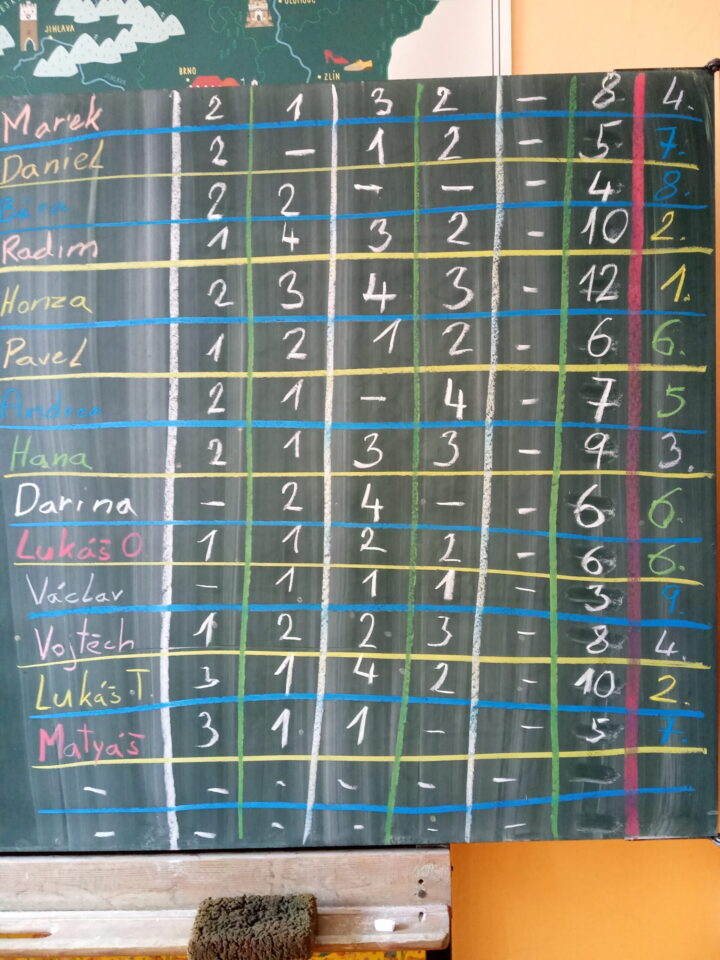 JIHLAVA
JIHLAVA
BRNO
ZLÍN
Marek 2 1 3 2 - 8 4.
Daniel 2 - 1 2 - 5 7.
Bára 2 2 - - - 4 8.
Radim 1 4 3 2 - 10 2.
Honza 2 3 4 3 - 12 1.
Pavel 1 2 1 2 - 6 6.
Andrea 2 1 - 4 - 7 5
Hana 2 1 3 3 - 9 3.
Darina - 2 4 - - 6 6.
Lukáš O. 1 1 2 2 - 6 6.
Václav - 1 1 1 - 3 9.
Vojtěch 1 2 2 3 - 8 4.
Lukáš T. 3 1 4 2 - 10 2.
Matyáš 3 1 1 - - 5 7.
- - - - - -
- - - - - -